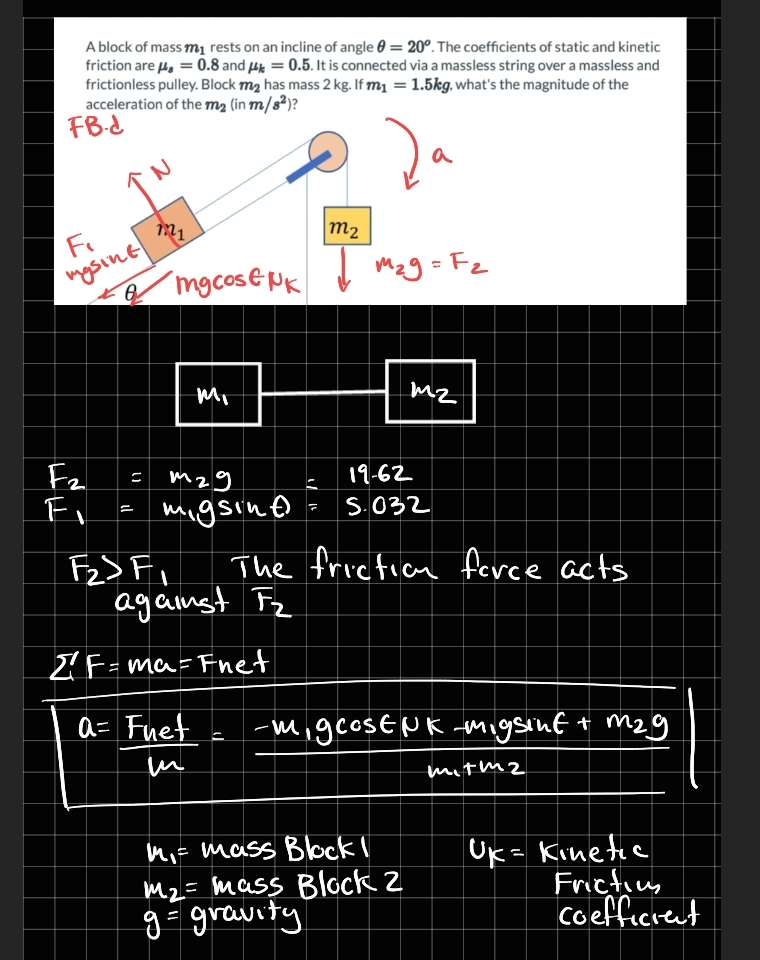 A block of mass m₁ rests on an incline of angle θ = 20°. The coefficients of static and kinetic
friction are μₛ = 0.8 and μₖ = 0.5. It is connected via a massless string over a massless and
frictionless pulley. Block m₂ has mass 2 kg. If m₁ = 1.5kg, what's the magnitude of the
acceleration of the m₂ (in m/s²)?
FB.d
a
N
m₁
m₂
F₁
mgsinθ
θ
mgcosθ μK
m₂g = F₂
m₁
m₂
F₂ = m₂g = 19.62
F₁ = m₁gsinθ = 5.032
F₂>F₁ The friction force acts
against F₂
ΣF = ma = Fnet
a = Fnet/m = (-m₁gcosθ μK - m₁gsinθ + m₂g)/(m₁+m₂)
m₁ = mass Block 1
m₂ = mass Block 2
g = gravity
UK = Kinetic
Friction
coefficient